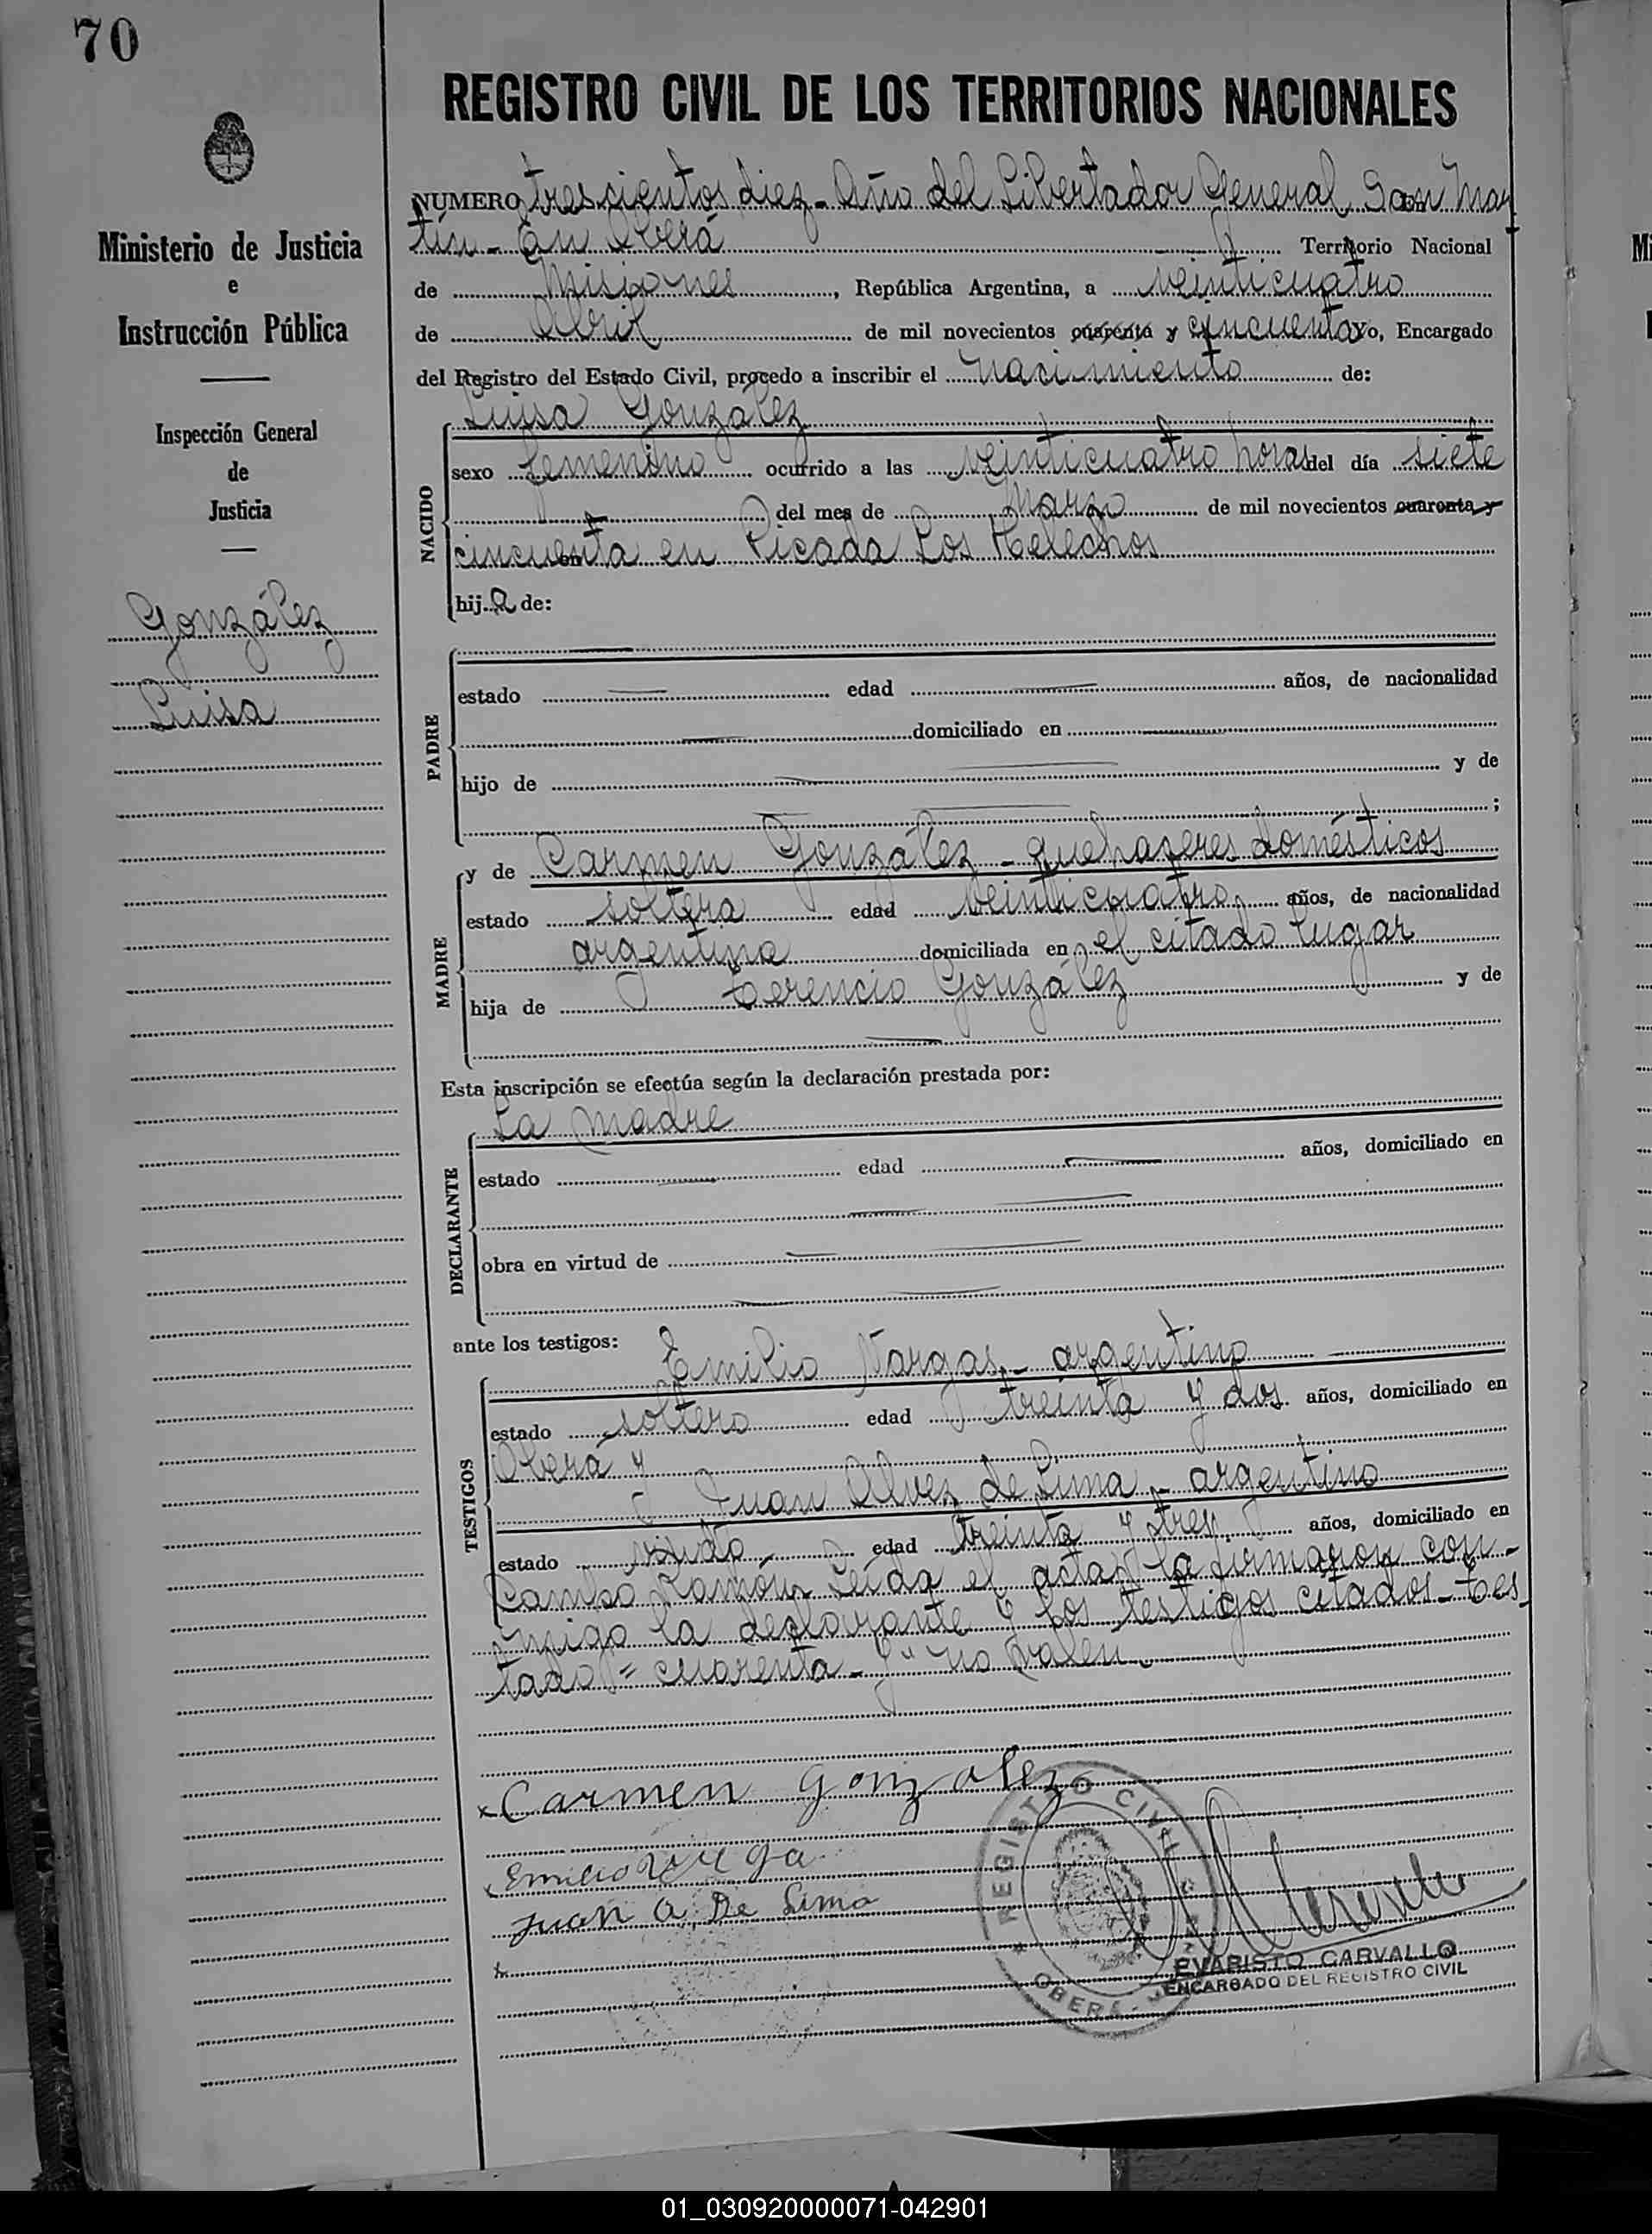 70
REGISTRO CIVIL DE LOS TERRITORIOS NACIONALES
NUMERO trescientos diez - Año del Libertador General San Mar
tín - En Oberá Territorio Nacional
de Misiones, República Argentina, a veinticuatro
de Abril de mil novecientos cuarenta y cincuenta yo, Encargado
del Registro del Estado Civil, procedo a inscribir el nacimiento de:
Ministerio de Justicia
e
Instrucción Pública
Inspección General
de
Justicia
González
Luisa
NACIDO
Luisa González
sexo femenino ocurrido a las veinticuatro horas del día siete
del mes de Marzo de mil novecientos cuarenta y
cincuenta en Picada Los Helechos
hija de:
PADRE
estado edad años, de nacionalidad
domiciliado en
hijo de y de
;
MADRE
y de Carmen González - quehaceres domésticos
estado soltera edad veinticuatro años, de nacionalidad
argentina domiciliada en el citado lugar
hija de Terencio González y de
Esta inscripción se efectúa según la declaración prestada por:
DECLARANTE
La madre
estado edad años, domiciliado en
obra en virtud de
ante los testigos:
TESTIGOS
Emilio Vargas - argentino
estado soltero edad treinta y dos años, domiciliado en
Oberá y
Juan Alvez de Lima - argentino
estado viudo edad treinta y tres años, domiciliado en
Campo Ramón. Leída el acta, la firmaron con-
migo la declarante y los testigos citados - Tes
tado = cuarenta - y" no valen.
x Carmen Gonzalez
Emilio
Juan A. De Lima
x
REGISTRO CIVIL
OBERÁ
EVARISTO CARVALLO
ENCARGADO DEL REGISTRO CIVIL
01_030920000071-042901